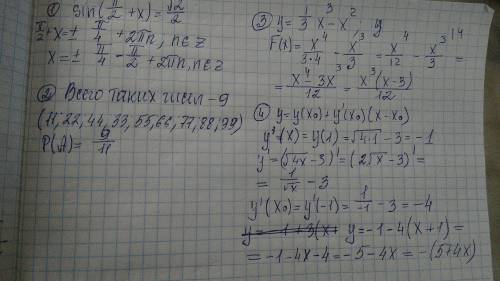 ① sin(π/2 + x) = √2/2
π/2 + x = ± π/4 + 2πn, n∈z
x = ± π/4 - π/2 + 2πn, n∈z
② Всего таких чисел - 9
(11, 22, 44, 33, 55, 66, 77, 88, 99)
P(A) = 9/11
③ y = 1/3 x³ - x²
F(x) = x⁴/3·4 - x³/3 = x⁴/12 - x³/3 =
= x⁴ - 3x/12 = x³(x-3)/12
④ y = y(x₀) + y'(x₀)(x - x₀)
y(x) = y(1) = √4·1 - 3 = -1
y' = (√4x - 3)' = (2√x - 3)' =
= 1/√x - 3
y'(x₀) = y'(-1) = 1/-1 - 3 = -4
y = -1 + 3(x+ y = -1 - 4(x+1) =
= -1 - 4x - 4 = -5 - 4x = -(5+4x)